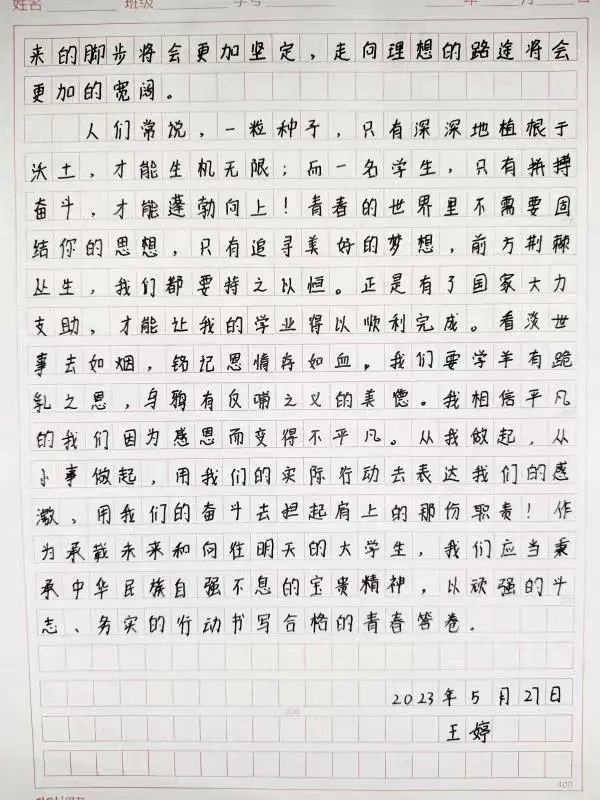 姓名 班级 学号 年 月 日
来的脚步将会更加坚定，走向理想的路途将会
更加的宽阔。
人们常说，一粒种子，只有深深地植根于
沃土，才能生机无限；而一名学生，只有拼搏
奋斗，才能蓬勃向上！青春的世界里不需要固
结你的思想，只有追寻美好的梦想，前方荆棘
丛生，我们都要持之以恒。正是有了国家大力
支助，才能让我的学业得以顺利完成。看淡世
事去如烟，铭记恩情存如血，我们要学羊有跪
乳之恩，乌鸦有反哺之义的美德。我相信平凡
的我们因为感恩而变得不平凡。从我做起，从
小事做起，用我们的实际行动去表达我们的感
激，用我们的奋斗去担起肩上的那份职责！作
为承载未来和向往明天的大学生，我们应当秉
承中华民族自强不息的宝贵精神，以顽强的斗
志、务实的行动书写合格的青春答卷．
2023年5月27日
300
王婷
400